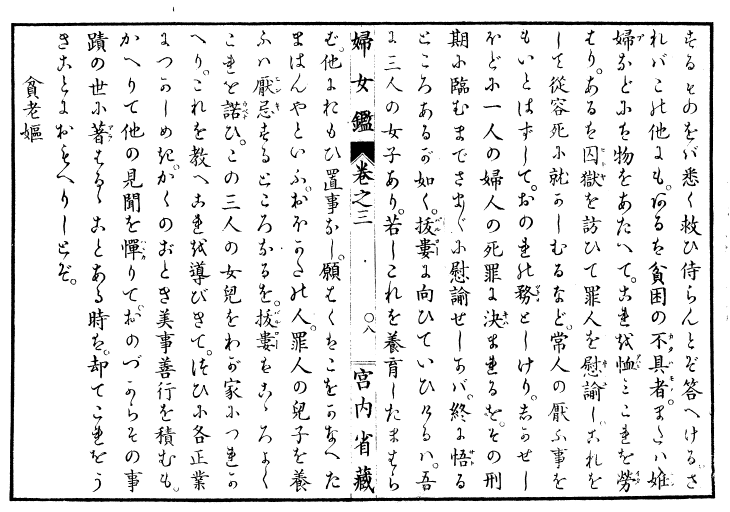 するものをバ悉く救ひ侍らんとぞ答へける。さ
れバこの他にも。あるは貧困の不具者。または娠
婦などには物をあたへて。これを恤ミこれを勞
はり。あるは囚獄を訪ひて罪人を慰諭し。これを
して從容死に就かしむるなど。常人の厭ふ事を
もいとはずして。おのれの務としけり。しかせし
ほどに一人の婦人の死罪に決まれるを。その刑
期に臨むまでさまざまに慰諭せしかバ。終に悟る
ところあるが如く。抜婁に向ひていひけるハ。吾
に三人の女子あり。若しこれを養育したまはら
婦女鑑 巻之三 〇八 宮内省藏
む。他におもひ置事なし。願はくはこをかなへた
まはんやといふ。おほかたの人。罪人の兒子を養
ふハ厭忌するところなるを。抜婁はこゝろよく
これを諾ひ。この三人の女兒をわが家につれか
へり。これを教へこれを導びきて。つひに各正業
につかしめき。かくのごとき美事善行を積むも。
かへりて他の見聞を憚りて。おのづからその事
蹟の世に著はるゝことある時は。却てこれをう
きことにおもへりしとぞ。
貧老嫗